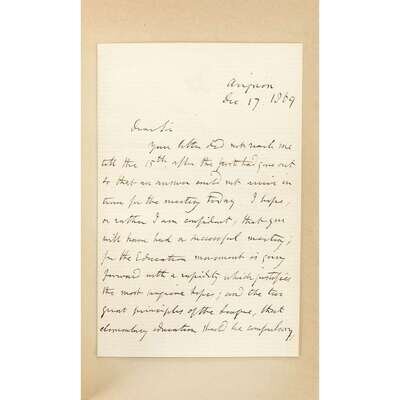 Avignon
Dec 17 1869
Dear Sir
Your letter did not reach me
till the 15th after the post had gone out
so that an answer could not arrive in
time for the meeting today. I hope,
or rather I am confident, that you
will have had a successful meeting;
for the Education movement is going
forward with a rapidity which justifies
the most sanguine hopes; and the two
great principles of the League, that
elementary education should be compulsory,